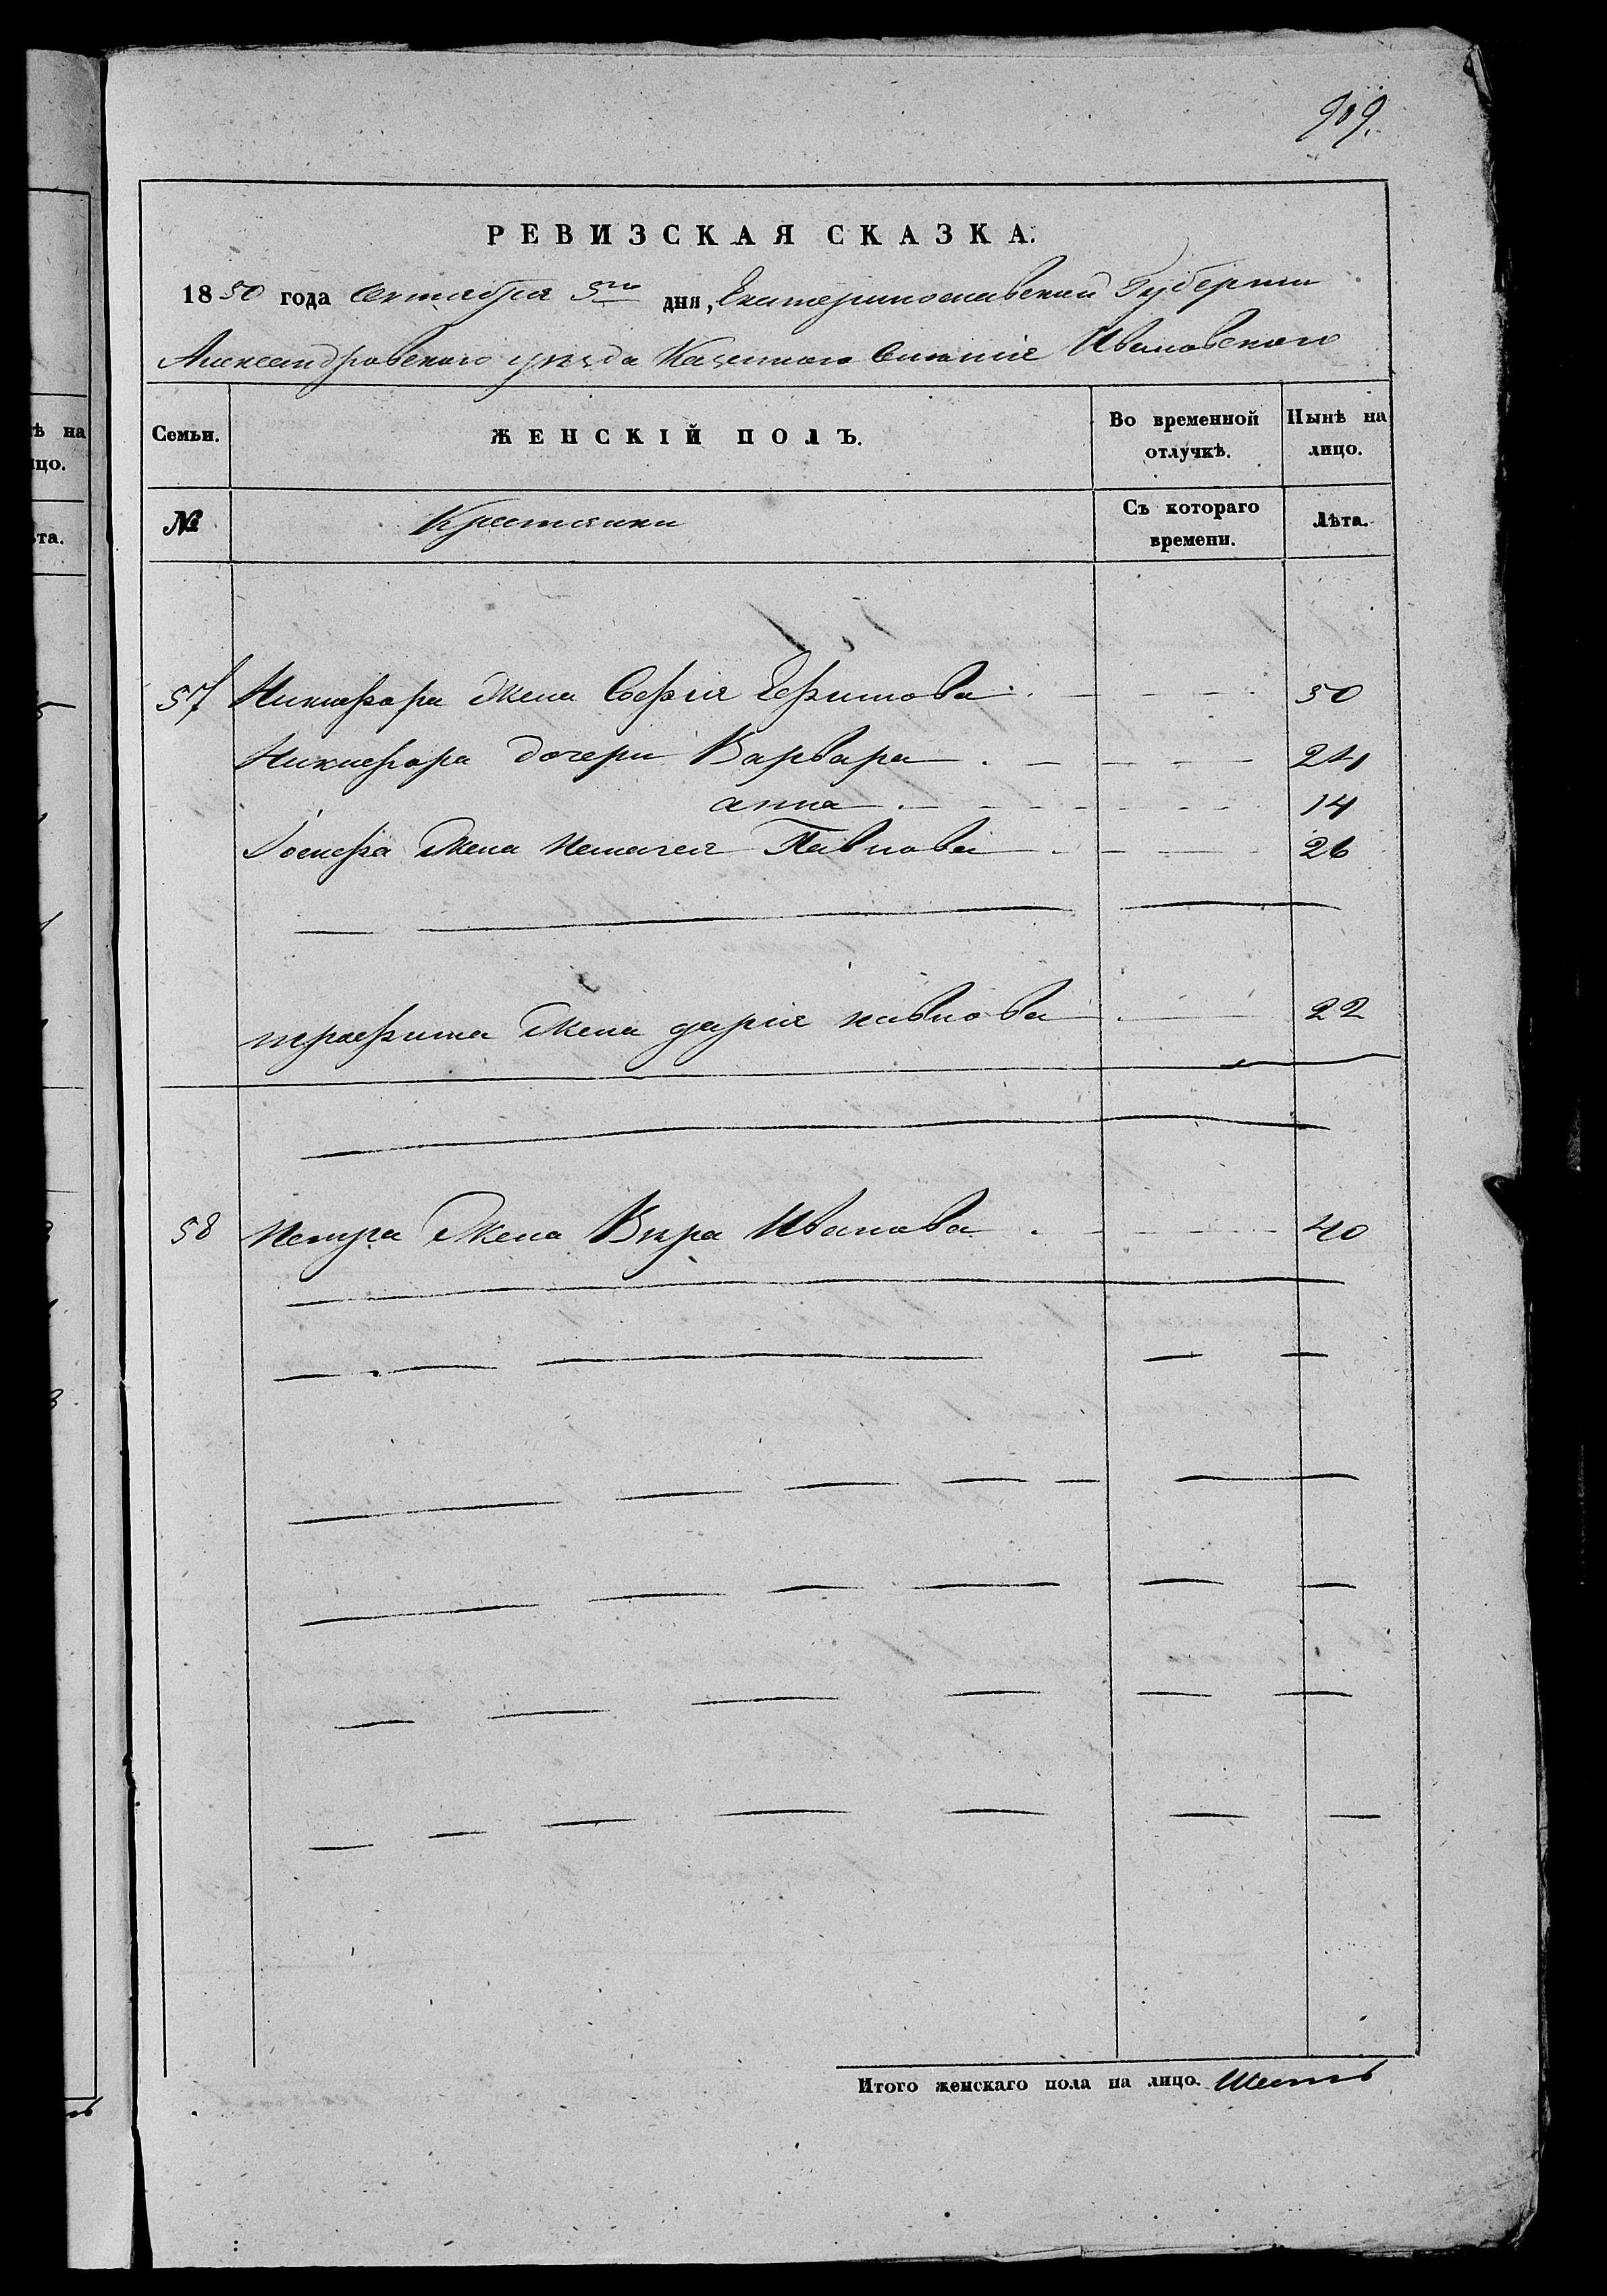 909.
РЕВИЗСКАЯ СКАЗКА.
1850 года Октября 5го дня, Екатеринославской Губернии
Александровского уѣзда Казенного Селѣния Ивановского
Семьи. ЖЕНСКІЙ ПОЛЪ. Во временной отлучкѣ. Нынѣ на лицо.
№ Крестянки Съ котораго времени. Лѣта.
57 Никифора жена Софія Ефимова 50
Никифора дочери Варвара 24
анна 14
Іосифа жена Пелагея Павлова 26
трофима жена дарія павлова 22
58 Петра жена Вѣра Иванова 40
Итого женскаго пола на лицо. Шесть
ѣ на
цо.
ѣта.